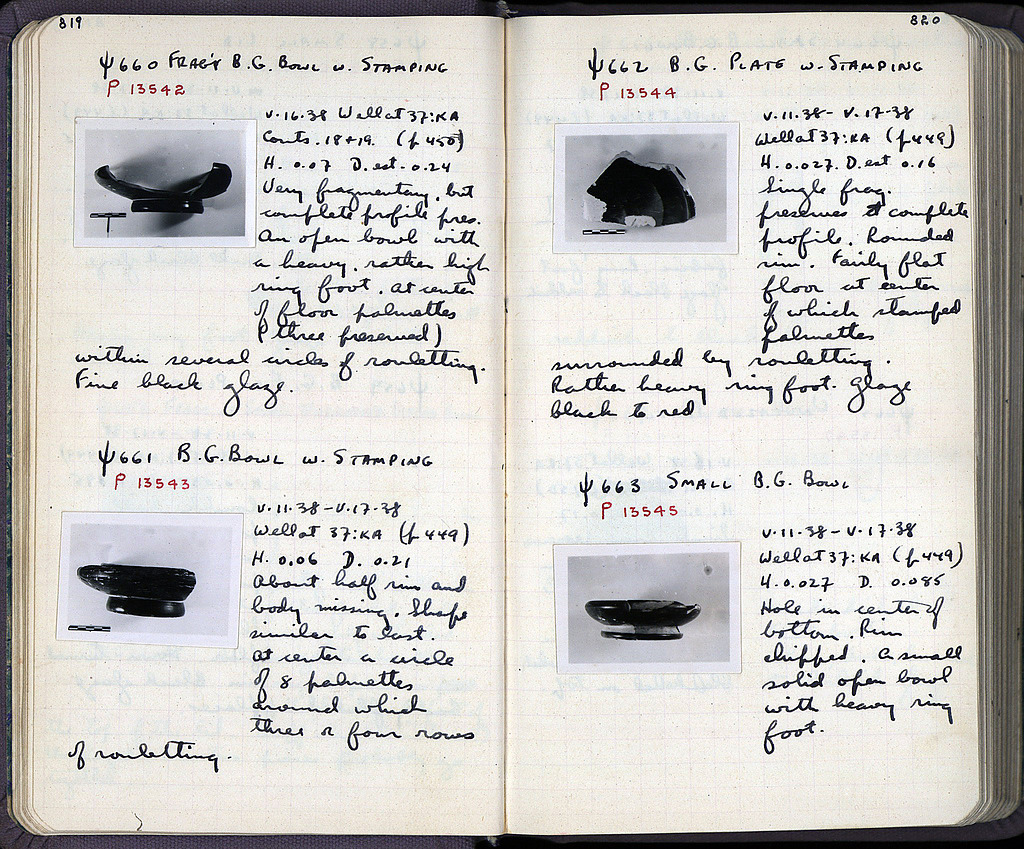 819
ψ660 FRAG'Y B.G. BOWL W. STAMPING
P 13542
V.16.38 Well at 37:KA
Conts. 18+19. (p 450)
H. 0.07 D. est. 0.24
Very fragmentary, but
complete profile pres.
An open bowl with
a heavy, rather high
ring foot. At center
of floor palmettes
(three preserved)
within several circles of rouletting.
Fine black glaze.
ψ661 B.G. BOWL W. STAMPING
P 13543
V.11.38 – V.17.38
Well at 37:KA (p 449)
H. 0.06 D. 0.21
About half rim and
body missing. Shape
similar to last.
At center a circle
of 8 palmettes
around which
three or four rows
of rouletting.
820
ψ662 B.G. PLATE W. STAMPING
P 13544
V.11.38 – V.17.38
Well at 37:KA (p 449)
H. 0.027. D. est 0.16
Single frag.
preserves complete
profile. Rounded
rim. Fairly flat
floor at center
of which stamped
palmettes
surrounded by rouletting.
Rather heavy ring foot. Glaze
black to red
ψ663 SMALL B.G. BOWL
P 13545
V.11.38 – V.17.38
Well at 37:KA (p 449)
H. 0.027 D. 0.085
Hole in center of
bottom. Rim
chipped. A small
solid open bowl
with heavy ring
foot.